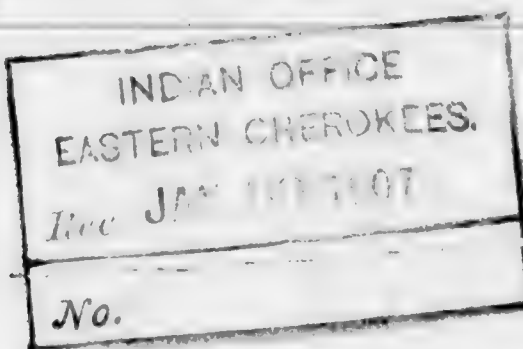 INDIAN OFFICE
EASTERN CHEROKEES.
Rec JAN 07
No.